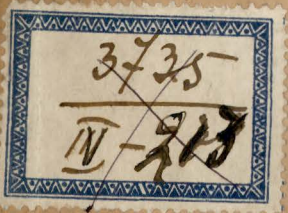 3735
IV - 213